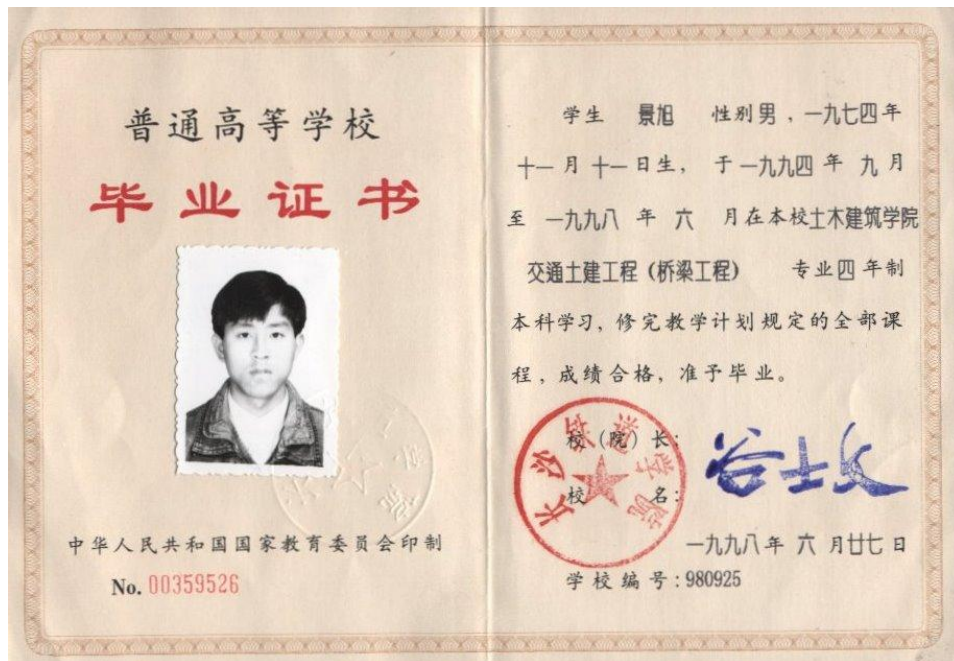 普通高等学校
毕业证书
中华人民共和国国家教育委员会印制
No. 00359526
学生 景旭 性别男，一九七四年
十一月十一日生，于一九九四年九月
至一九九八年六月在本校土木建筑学院
交通土建工程（桥梁工程） 专业四年制
本科学习，修完教学计划规定的全部课
程，成绩合格，准予毕业。
校（院）长：
谷士文
校 名：
长沙铁道学院
一九九八年六月廿七日
学校编号：980925